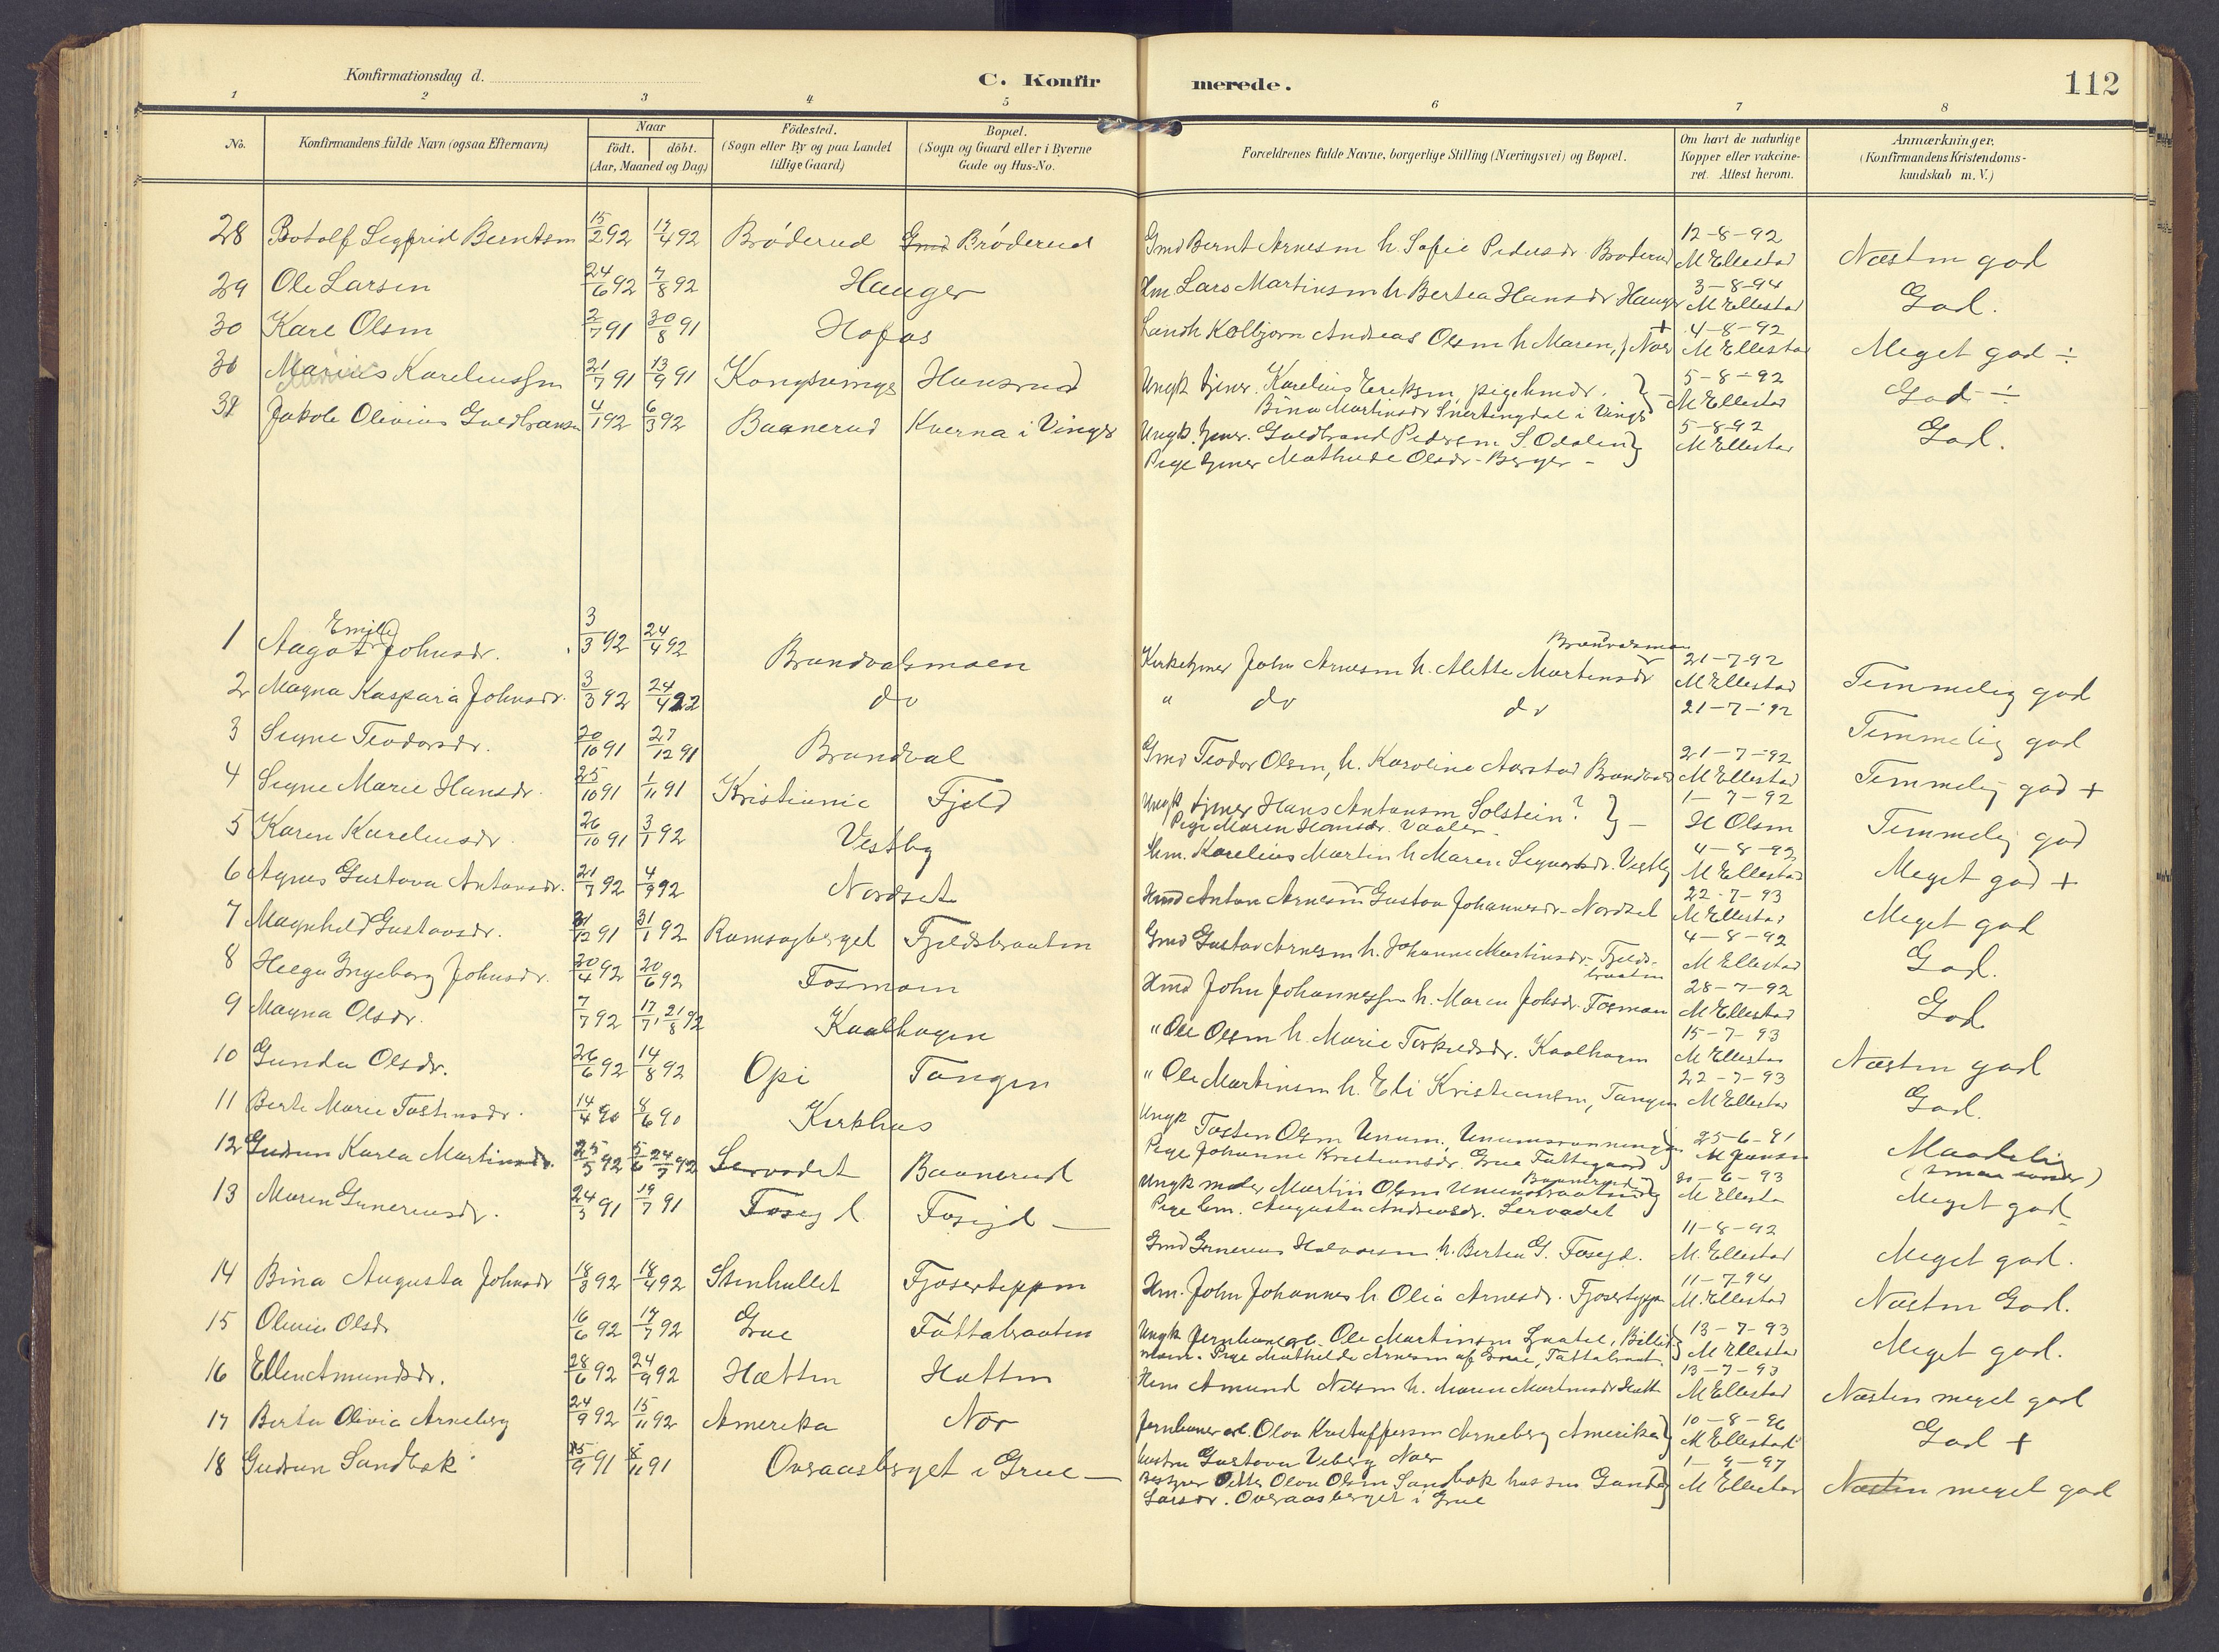 Konfirmationsdag d.
C. Konfirmerede.
112
1 2 3 4 5 6 7 8
No. Konfirmandens fulde Navn (ogsaa Efternavn) Naar født. døbt. (Aar, Maaned og Dag) Födested. (Sogn eller By og paa Landet tillige Gaard) Bopæl. (Sogn og Gaard eller i Byerne Gade og Hus-No. Forældrenes fulde Navne, borgerlige Stilling (Næringsvei) og Bopæl. Om havt de naturlige Kopper eller vakcineret. Attest herom. Anmærkninger. (Konfirmandens Kristendomskundskab m.V.)
28 Botolf Sigfrid Berntsen 15/2 92 17/4 92 Bröderud Gmd Bröderud Gmd Bernt Arnesen h. Sofie Pedersdr. Bröderud 12-8-92 M Ellestad Næsten god
29 Ole Larsen 24/6 92 7/8 92 Hauger Hm Lars Martinsen h Bertea Hansdr Hauger 3-8-94 M Ellestad God.
30 Kare Olsen 2/7 91 30/8 91 Hofos Landh Kolbjørn Andreas Olsen h Maren, + Nor 4-8-92 M Ellestad Meget god ÷
31 Marius Kareliussen 21/7 91 13/9 91 Kongsvinger Hansrud Ungk tjener Karelius Eriksen, pige hmdr. Bina Martinsdr Snertingdal i Vinger 5-8-92 M Ellestad God ÷
32 Jakob Olivius Guldbransen 4/1 92 6/3 92 Baanerud Kverna i Vinger Ungk. tjener. Guldbrand Pedersen S. Odalen Pige tjener Mathilde Olsdr. Berger - 5-8-92 M Ellestad God.
1 Aagot Emilie Johnsdr. 3/3 92 24/4 92 Brandvalsmoen Kirketjener John Arnesen h. Alette Martinsdr Brandvalsmoen 21-7-92 M Ellestad Temmelig god
2 Magna Kaspara Johnsdr. 3/3 92 24/4 92 do " do do 21-7-92 Temmelig god
3 Signe Teodorsdr. 20/10 91 27/12 91 Brandval Gmd Teodor Olsen, h. Karoline Aarstad Brandval 21-7-92 M Ellestad Temmelig god +
4 Signe Marie Hansdr. 25/10 91 1/11 91 Kristiania Fjeld Ungk tjener Hans Antonsen Solstein? Pige Maren Hansdr. Vaaler - 1-7-92 H Olsen Temmelig god
5 Karen Kareliusdr. 26/10 91 3/1 92 Vestby Hm. Karelius Martin h Maren Sigvartsdr. Vestby 4-8-92 M Ellestad Meget god +
6 Agnes Gustava Antonsdr. 21/7 92 4/9 92 Nordset Hmd Anton Arnesen Gustava Johannesdr. Nordset 22-7-93 M Ellestad Meget god
7 Magnhild Gustavsdr. 31/12 91 31/1 92 Ramsagberget Fjeldbraaten Gmd Gustav Arnesen h. Johanne Martinsdr. Fjeldbraaten 4-8-92 M Ellestad God.
8 Helga Ingeborg Johnsdr. 20/4 92 20/6 92 Fosmoen Hmd John Johannessen h. Maren Johsdr. Fosmoen 28-7-92 M Ellestad God
9 Magna Olsdr. 7/7 92 17/7 21/8 92 Kaalhagen " Ole Olsen h. Marie Torkildsdr. Kaalhagen 15-7-93 M Ellestad Næsten god
10 Gunda Olsdr. 26/6 92 14/8 92 Opi Tangen " Ole Martinsen h. Eli Kristiansen, Tangen 22-7-93 M Ellestad God.
11 Berte Marie Tostensdr. 14/4 90 8/6 90 Kirkhus Ungk Tosten Olsen Unum, Pige Johanne Kristiansdr. Grue 25-6-91 M Jensen Maadelig
12 Gudrun Karla Martinsdr. 25/5 92 5/6 24/7 92 Servodet Baanerud Ungk maler Martin Olsen Baanerud Pige hm. Augusta Andreasdr. Servodet 20-6-93 M Ellestad Meget god
13 Maren Gunerusdr. 24/3 91 19/7 91 Foseid Foseid Gmd Gunerius Halvorsen h. Bertea G. Foseid. 11-8-92 M. Ellestad Meget god.
14 Bina Augusta Johnsdr 18/3 92 18/4 92 Stenhullet Fjøserteppen Hm. John Johannes h. Olia Arnesdr. Fjøserteppen 11-7-94 M. Ellestad Næsten God.
15 Olivia Olsdr 16/6 92 17/7 92 Grue Tottabraaten Ungk jernbanearb. Ole Martinsen Pige Mathilde Arnesen af Grue, Tottabraat. 13-7-93 M Ellestad Meget god.
16 Ellen Amundsdr. 28/6 92 24/9 92 Hætten Hætten Hm Amund Nilsen h. Maren Martinsdr Hætt 13-7-93 M Ellestad Næsten meget god
17 Berta Olivia Arneberg 24/9 92 15/11 92 Amerika Nor Jernbanearb. Olav Kristoffersen Arneberg Amerika hustru Gustava Viberg Nor 10-8-96 M Ellestad God +
18 Gudrun Sandbæk 15/9 91 8/11 91 Overaasberget i Grue Bestyrer Petter Olava Olsen Sandbæk hustru Gunda Larsdr. Overaasberget i Grue 1-9-97 M Ellestad Næsten meget god